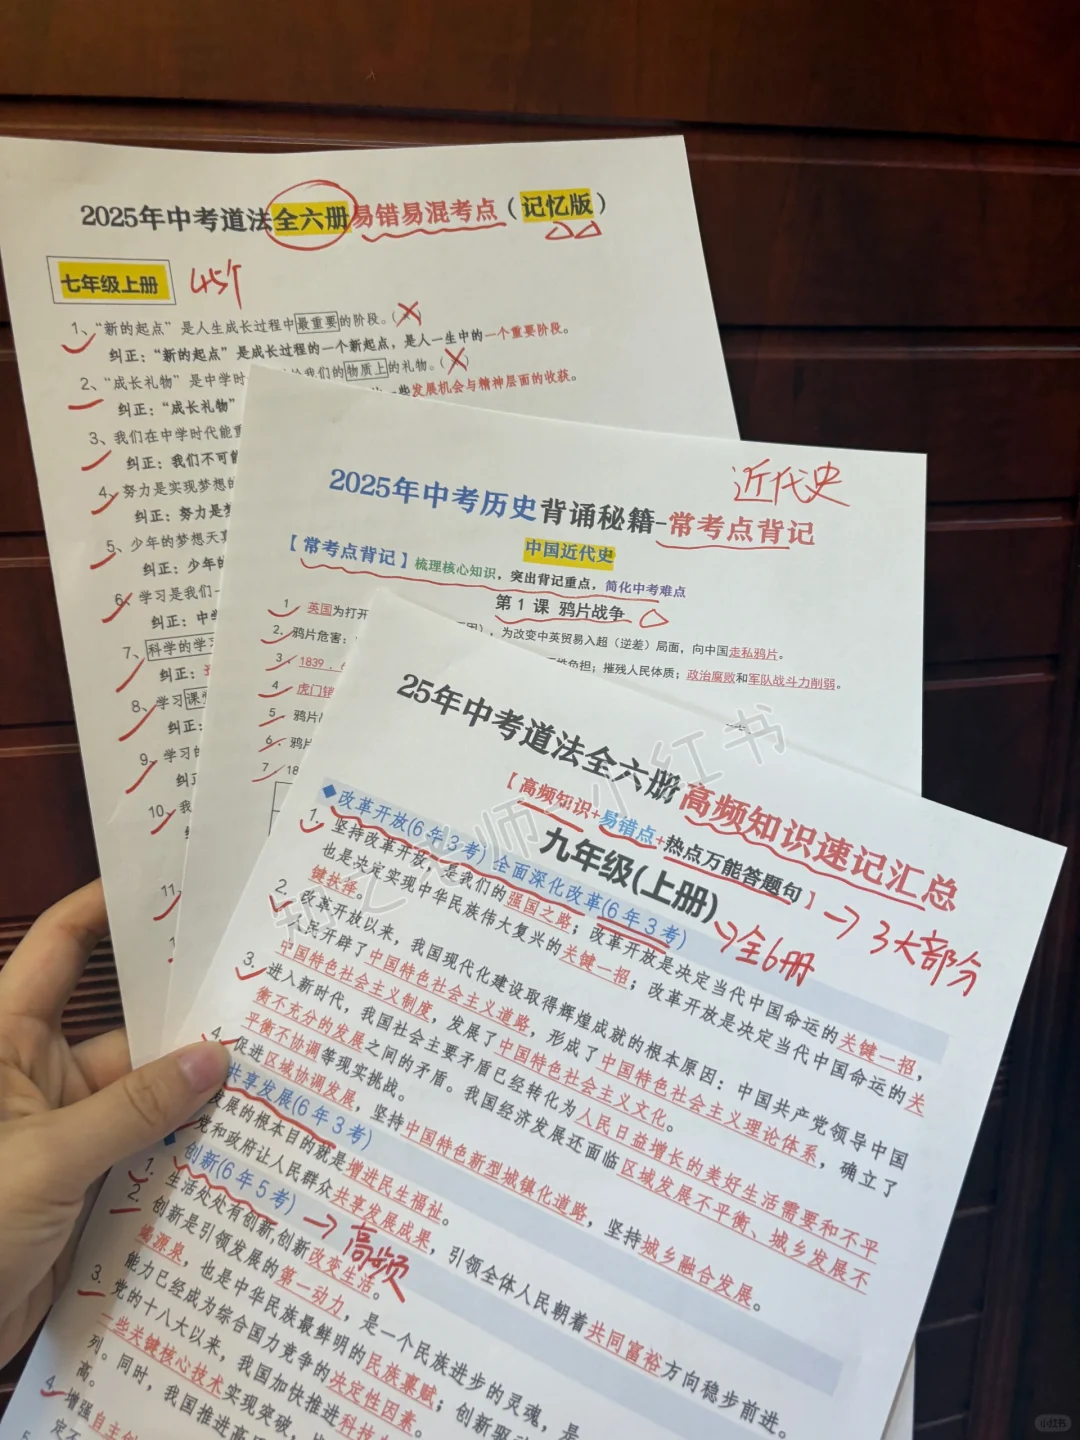 2025年中考道法全六册易错易混考点（记忆版）
七年级上册 45个
1、“新的起点”是人生成长过程中最重要的阶段。（×）
纠正：“新的起点”是成长过程的一个新起点，是人一生中的一个重要阶段。
2、“成长礼物”是中学时 我们的物质上的礼物。（×）
纠正：“成长礼物” 些发展机会与精神层面的收获。
3、我们在中学时代能重
纠正：我们不可能
4、努力是实现梦想的
纠正：努力是梦
5、少年的梦想天真
纠正：少年的
6、学习是我们一
纠正：中学
7、科学的学习
纠正：
8、学习课堂
纠正：
9、学习的
纠正
10、我
11、
近代史
2025年中考历史背诵秘籍-常考点背记
中国近代史
【常考点背记】梳理核心知识，突出背记重点，简化中考难点
第1课 鸦片战争
1 英国为打开 ，为改变中英贸易入超（逆差）局面，向中国走私鸦片。
2．鸦片危害： 负担；摧残人民体质；政治腐败和军队战斗力削弱。
3．1839．6
4 虎门销
5 鸦片
6．鸦片
7 18
25年中考道法全六册高频知识速记汇总
【高频知识+易错点+热点万能答题句】→3大部分
九年级(上册)→全6册
◆改革开放(6年3考) 全面深化改革(6年3考)
1．坚持改革开放，是我们的强国之路；改革开放是决定当代中国命运的关键一招，
也是决定实现中华民族伟大复兴的关键一招；改革开放是决定当代中国命运的关
键抉择。
2．改革开放以来，我国现代化建设取得辉煌成就的根本原因：中国共产党领导中国
人民开辟了中国特色社会主义道路，形成了中国特色社会主义理论体系，确立了
中国特色社会主义制度，发展了中国特色社会主义文化。
3．进入新时代，我国社会主要矛盾已经转化为人民日益增长的美好生活需要和不平
衡不充分的发展之间的矛盾。我国经济发展还面临区域发展不平衡、城乡发展不
平衡不协调等现实挑战。
4．促进区域协调发展，坚持中国特色新型城镇化道路，坚持城乡融合发展。
共享发展(6年3考)
发展的根本目的就是增进民生福祉。
党和政府让人民群众共享发展成果，引领全体人民朝着共同富裕方向稳步前进。
◆创新(6年5考)→高频
1．生活处处有创新,创新改变生活。
2．创新是引领发展的第一动力，是一个民族进步的灵魂，是
竭源泉，也是中华民族最鲜明的民族禀赋；创新驱
能力已经成为综合国力竞争的决定性因素。
3．党的十八大以来，我国加快推进科技
一些关键核心技术实现突破，
列。同时，我国推进高
高。
4．增强自主创
定不
知之老师 小红书
小红书